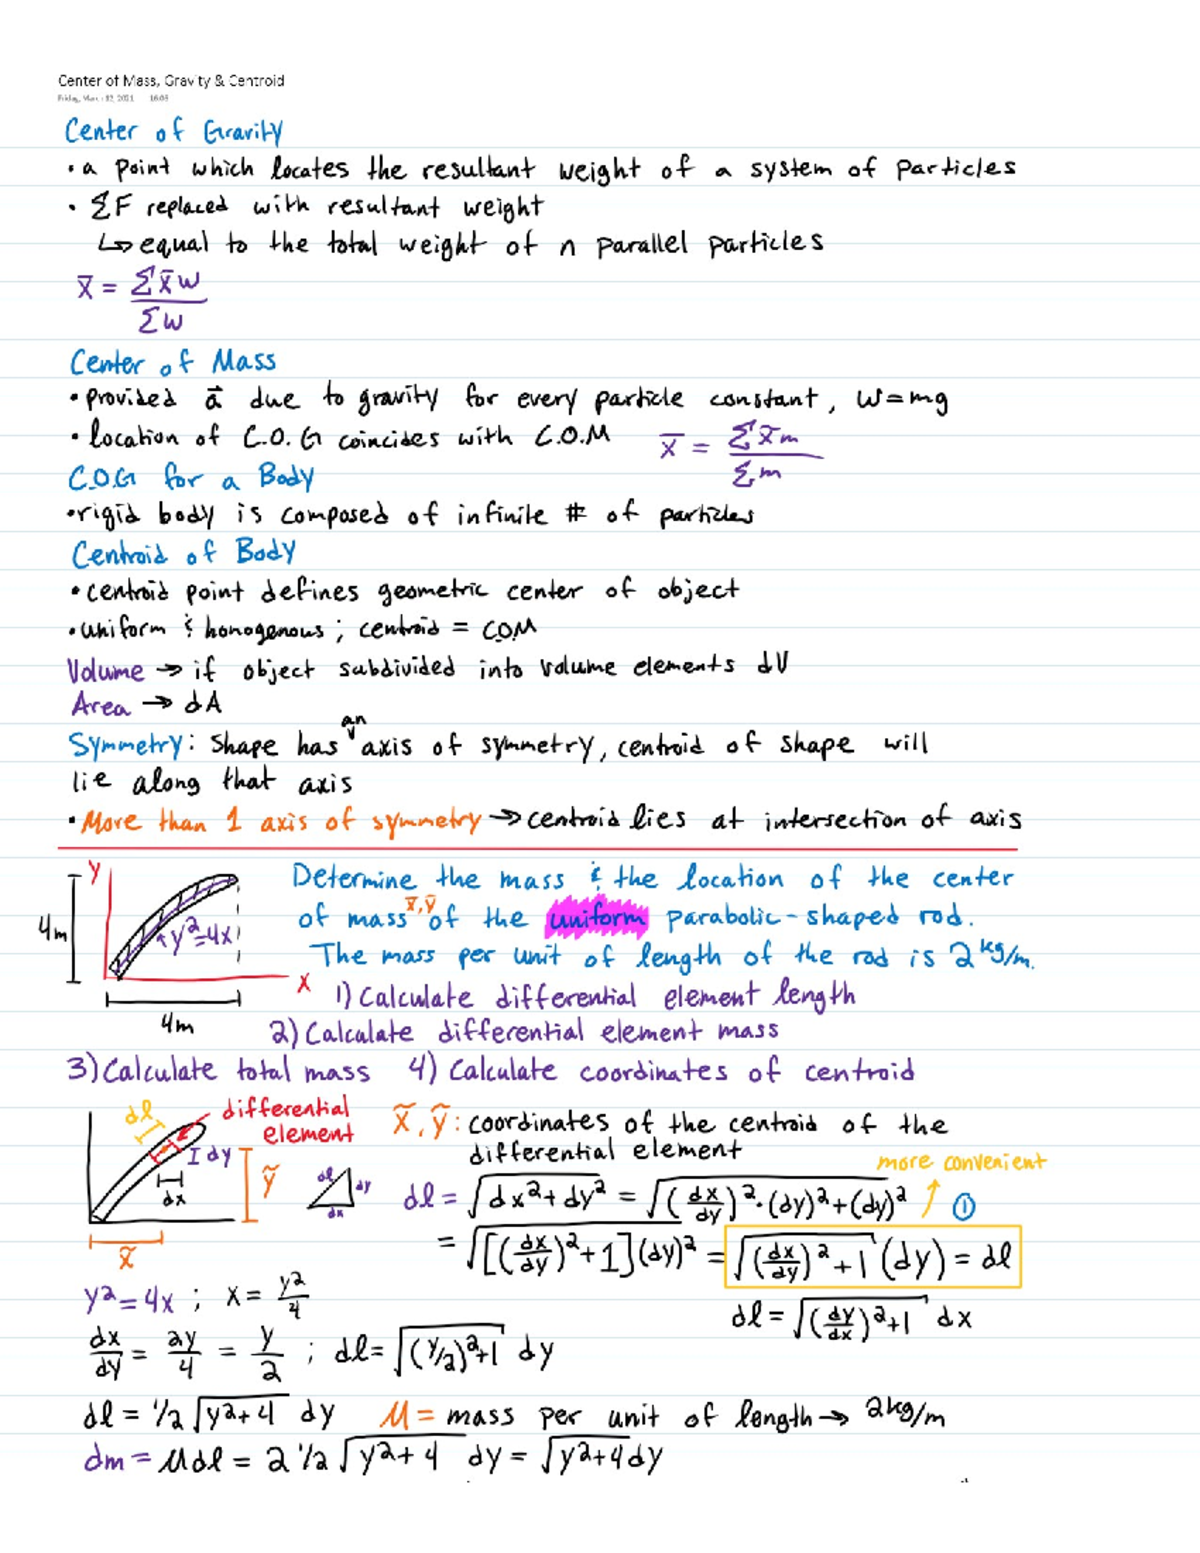 Center of Mass, Gravity & Centroid
Friday, March 12, 2021 16:03
Center of Gravity
• a point which locates the resultant weight of a system of particles
• ΣF replaced with resultant weight
↳ equal to the total weight of n parallel particles
x̄ = Σx̃w / Σw
Center of Mass
• provided a⃗ due to gravity for every particle constant, W=mg
• location of C.O.G coincides with C.O.M x̄ = Σx̃m / Σm
C.O.G for a Body
• rigid body is composed of infinite # of particles
Centroid of Body
• centroid point defines geometric center of object
• uniform & honogenous; centroid = C.O.M
Volume → if object subdivided into volume elements dV
Area → dA
Symmetry: shape has an axis of symmetry, centroid of shape will
lie along that axis
• More than 1 axis of symmetry → centroid lies at intersection of axis
y
4m
y²=4x
x
4m
Determine the mass & the location of the center
of mass x̄,ȳ of the uniform parabolic-shaped rod.
The mass per unit of length of the rod is 2 kg/m.
1) Calculate differential element length
2) Calculate differential element mass
3) Calculate total mass 4) Calculate coordinates of centroid
dl
differential
element
dy
dx
ỹ
x̃
dl
dy
dx
x̃, ỹ: coordinates of the centroid of the
differential element
more convenient
dl = √(dx²+dy²) = √((dx/dy)²·(dy)²+(dy)²) ↑ ①
= √([(dx/dy)²+1](dy)²) = √((dx/dy)²+1) (dy) = dl
y²=4x ; x = y²/4
dl = √((dy/dx)²+1) dx
dx/dy = 2y/4 = y/2 ; dl = √((y/2)²+1) dy
dl = 1/2 √(y²+4) dy M = mass per unit of length → 2kg/m
dm = Mdl = 2 1/2 √(y²+4) dy = √(y²+4) dy